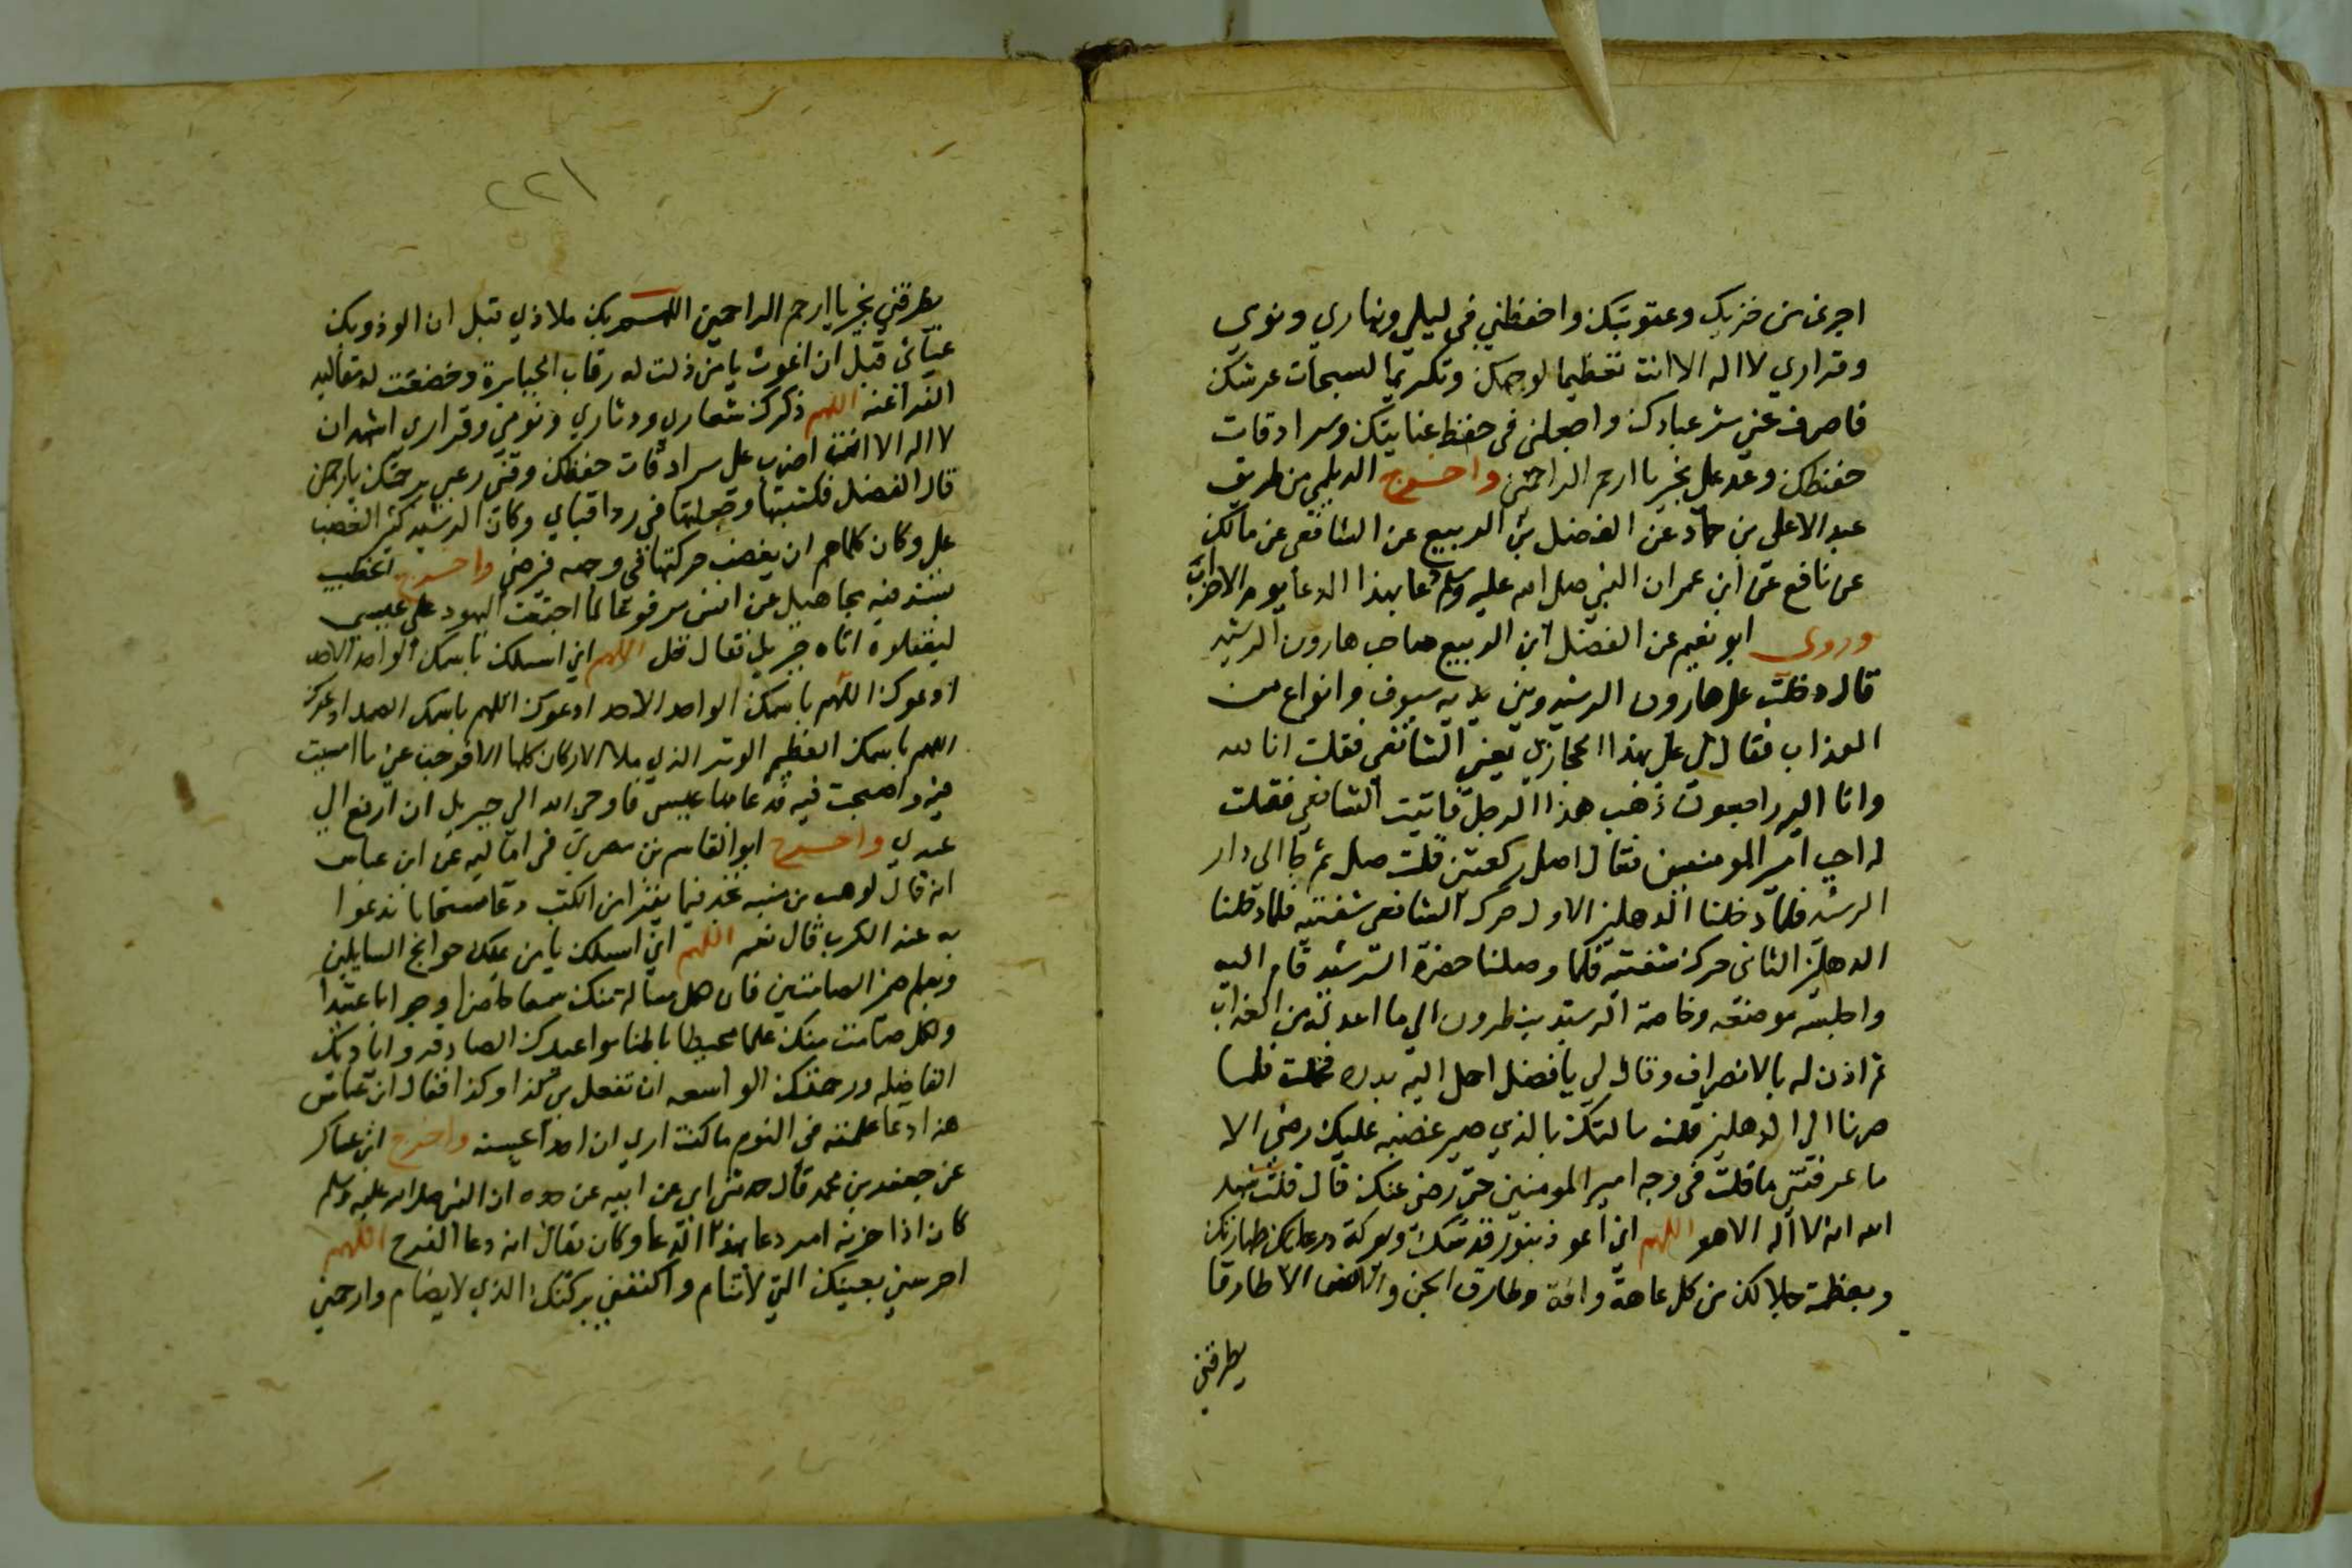 اجرني من خزيك وعقوبتك واحفظني في ليلي ونهاري ونومي
وقراري لا اله الا انت تعظيما لوجهك وتكريما لسبحات عرشك
فاصرف عني شر عبادك واجعلني في حفظ عنايتك وسرادقات
حفظك وعد علي بخير يا ارحم الراحمين واخرج الديلمي من طريق
عبد الاعلى بن حماد عن الفضل بن الربيع عن الشافعي عن مالك
عن نافع عن ابن عمر ان النبي صلى الله عليه وسلم دعا بهذا الدعا يوم الاحزاب
وروى ابو نعيم عن الفضل ابن الربيع صاحب هارون الرشيد
قال دخلت على هارون الرشيد وبين يديه سيوف وانواع من
العذاب فقال لي علي بهذا الحجازي يعني الشافعي فقلت انا لله
وانا اليه راجعون ذهب هذا الرجل فاتيت الشافعي فقلت
له اجب امير المومنين فقال اصلي ركعتين قلت صل ثم جا الى دار
الرشيد فلما دخلنا الدهليز الاول حرك الشافعي شفتيه فلما دخلنا
الدهليز الثاني حرك شفتيه فلما وصلنا حضرة الرشيد قام اليه
واجلسه موضعه وخاصة الرشيد ينظرون الى ما اعد له من العذاب
ثم اذن له بالانصراف وقال لي يا فضل احمل اليه بدرة فحملت فلما
صرنا الى الدهليز قلت سالتك بالذي صير غضبه عليك رضى الا
ما عرفتني ما قلت في وجه امير المومنين حتى رضي عنك قال قلت شهد
الله انه لا اله الا هو اللهم اني اعوذ بنور قدسك وبركة طهارتك
وبعظمة جلالك من كل عاهة وافة وطارق الجن والانس الا طارقا
يطرقني
٢٢١
يطرقني بخير يا ارحم الراحمين اللهم بك ملاذي قبل ان الوذ وبك
غياثي قبل ان اغوث يا من ذلت له رقاب الجبابرة وخضعت له مقاليد
الفراعنه اللهم ذكرك شعاري ودثاري ونومي وقراري اشهد ان
لا اله الا انت اضرب علي سرادقات حفظك وقني رعبي برحمتك يا رحمن
قال الفضل فكتبتها وجعلتها في ردا قباي وكان الرشيد كثير الغضب
علي وكان كلما هم ان يغضب حركتها في وجهه فيرضى واخرج الخطيب
بسند فيه مجاهيل عن انس مرفوعا لما اجتمعت اليهود على عيسى
ليقتلوه اتاه جبريل فقال قل اللهم اني اسلك باسمك الواحد الاحد
ادعوك اللهم باسمك الواحد الاحد ادعوك اللهم باسمك الصمد ادعوك
اللهم باسمك العظيم الوتر الذي ملا الاركان كلها الا فرجت عني ما امسيت
فيه واصبحت فيه فدعا بها عيسى فاوحى الله الى جبريل ان ارفع الي
عبدي واخرج ابو القاسم بن في اماليه عن ابن عباس
انه قال لوهب بن منبه نجد فيما يقرا من الكتب دعا مستجابا ندعوا
به عند الكرب قال نعم اللهم اني اسلك يا من يملك حوايج السايلين
ويعلم ضمير الصامتين فان لكل مسالة منك سمعا حاضرا وجوابا عتيدا
ولكل صامت منك علما محيطا باطنا مواعيدك الصادقه واياديك
الفاضله ورحمتك الواسعه ان تفعل بي كذا وكذا فقال ابن عباس
هذا دعا علمته في النوم ما كنت ارى ان احدا يحسنه واخرج ابن عساكر
عن جعفر بن محمد قال حدثني ابي عن ابيه عن جده ان النبي صلى الله عليه وسلم
كان اذا حزنه امر دعا بهذا الدعا وكان يقال انه دعا الفرج اللهم
احرسني بعينك التي لا تنام واكنفني بركنك الذي لا يضام وارحمني